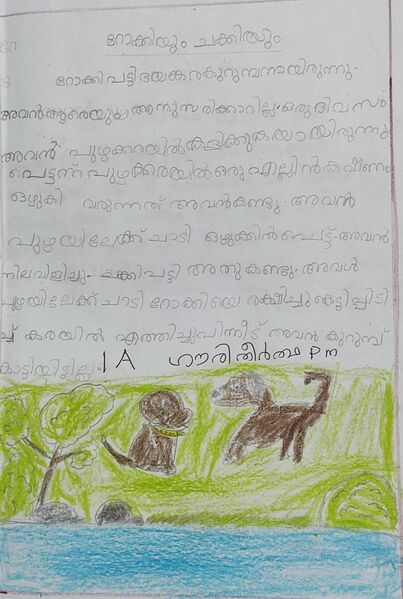 റോക്കിയും ചക്കിയും
റോക്കിപട്ടി ഭയങ്കരകുറുമ്പനായിരുന്നു.
അവൻ ആരെയും അനുസരിക്കാറില്ല. ഒരു ദിവസം
അവൻ പുഴക്കരയിൽ കളിക്കുകയായിരുന്നു
പെട്ടന്ന് പുഴക്കരയിൽ ഒരു എല്ലിൻകഷ്ണം
ഒഴുകി വരുന്നത് അവൻകണ്ടു. അവൻ
പുഴയിലേക്ക് ചാടി ഒഴുക്കിൽപെട്ട്. അവൻ
നിലവിളിച്ചു. ചക്കിപട്ടി അതുകണ്ടു. അവൾ
പുഴയിലേക്ക് ചാടി റോക്കിയെ രക്ഷിച്ചു കെട്ടിപ്പിടി
ച്ച് കരയിൽ എത്തിച്ചു പിന്നീട് അവൻ കുറുമ്പ്
കാട്ടിയിട്ടില്ല.
1 A ഗൗരിതീർത്ഥ P m